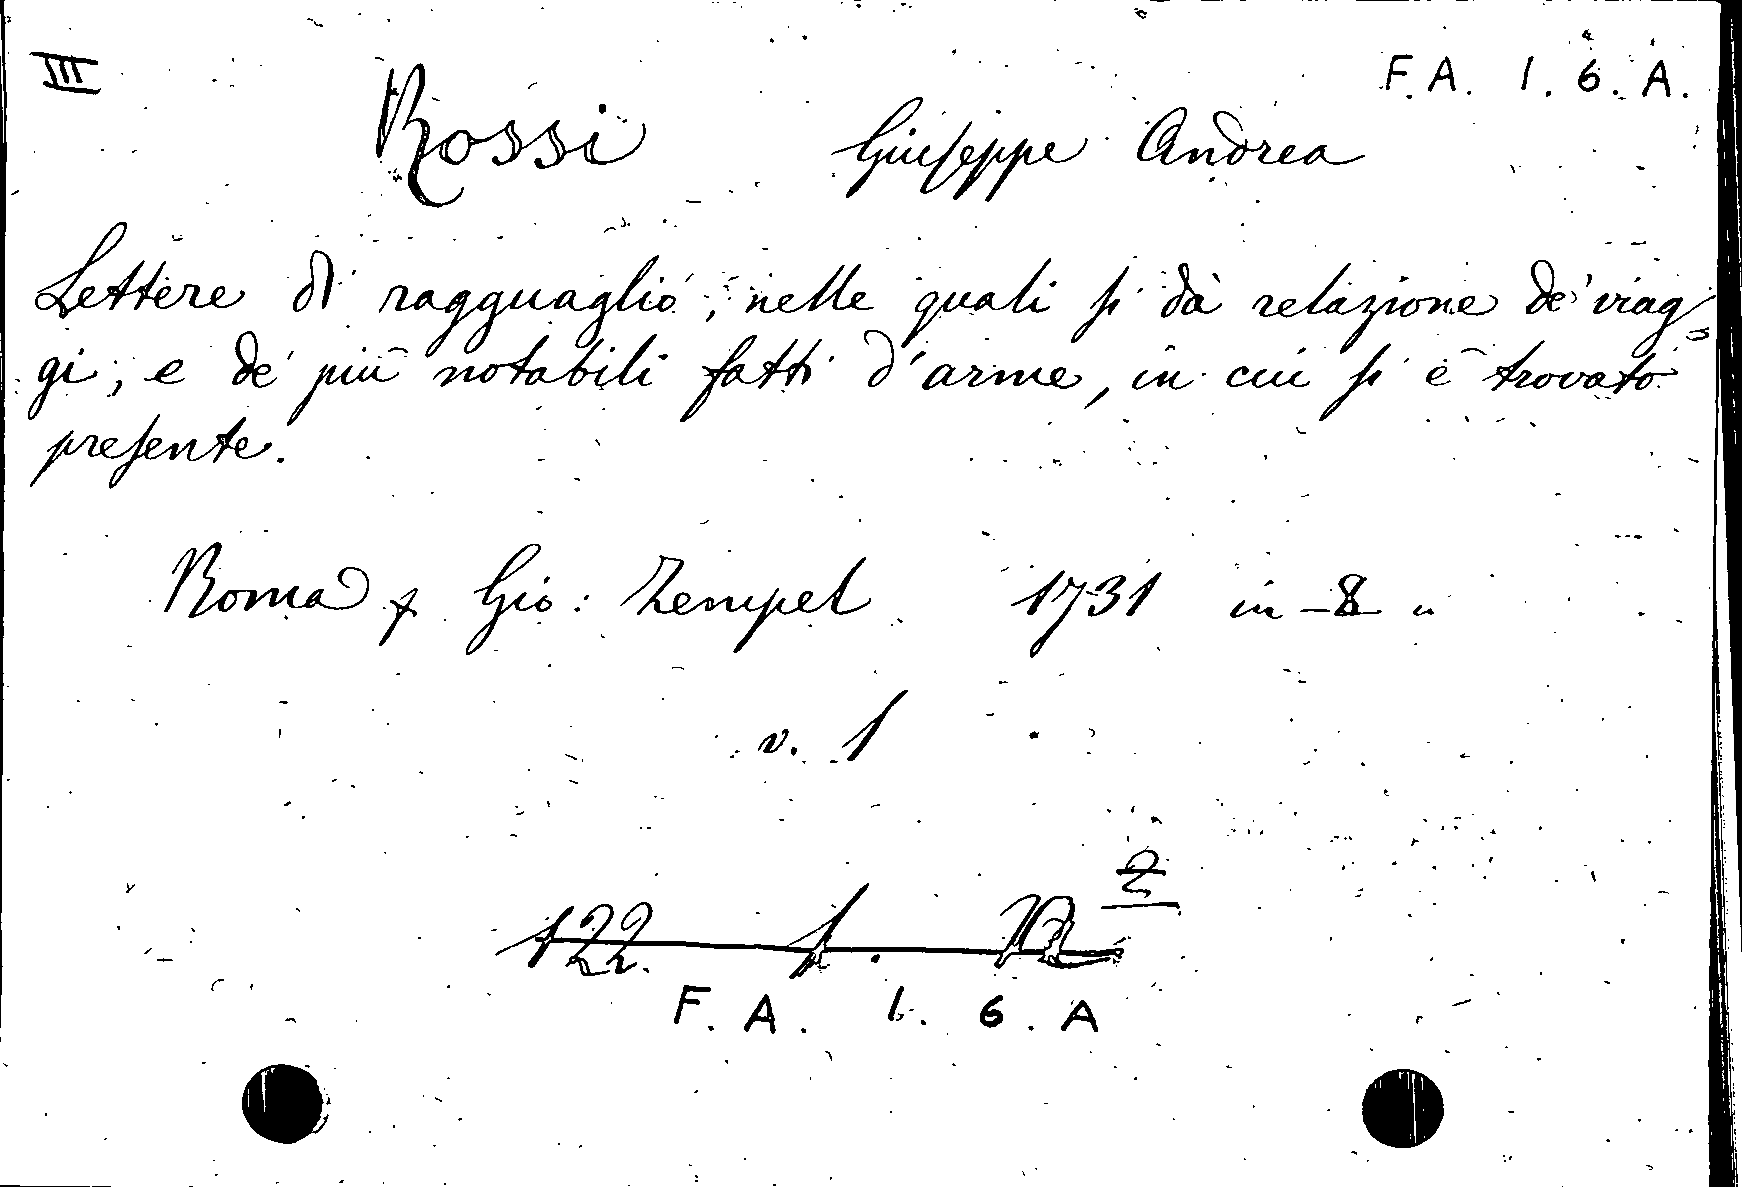 III
F. A. 1. 6. A.
Rossi Giuseppe Andrea
Lettere di ragguaglio, nelle quali si dà relazione de' viag=
gi, e de' più notabili fatti d'arme, in cui si è trovato
presente.
Roma p Gio: Zempel 1731 in - 8 "
v. 1
2
122. f.
F. A. 1. 6. A